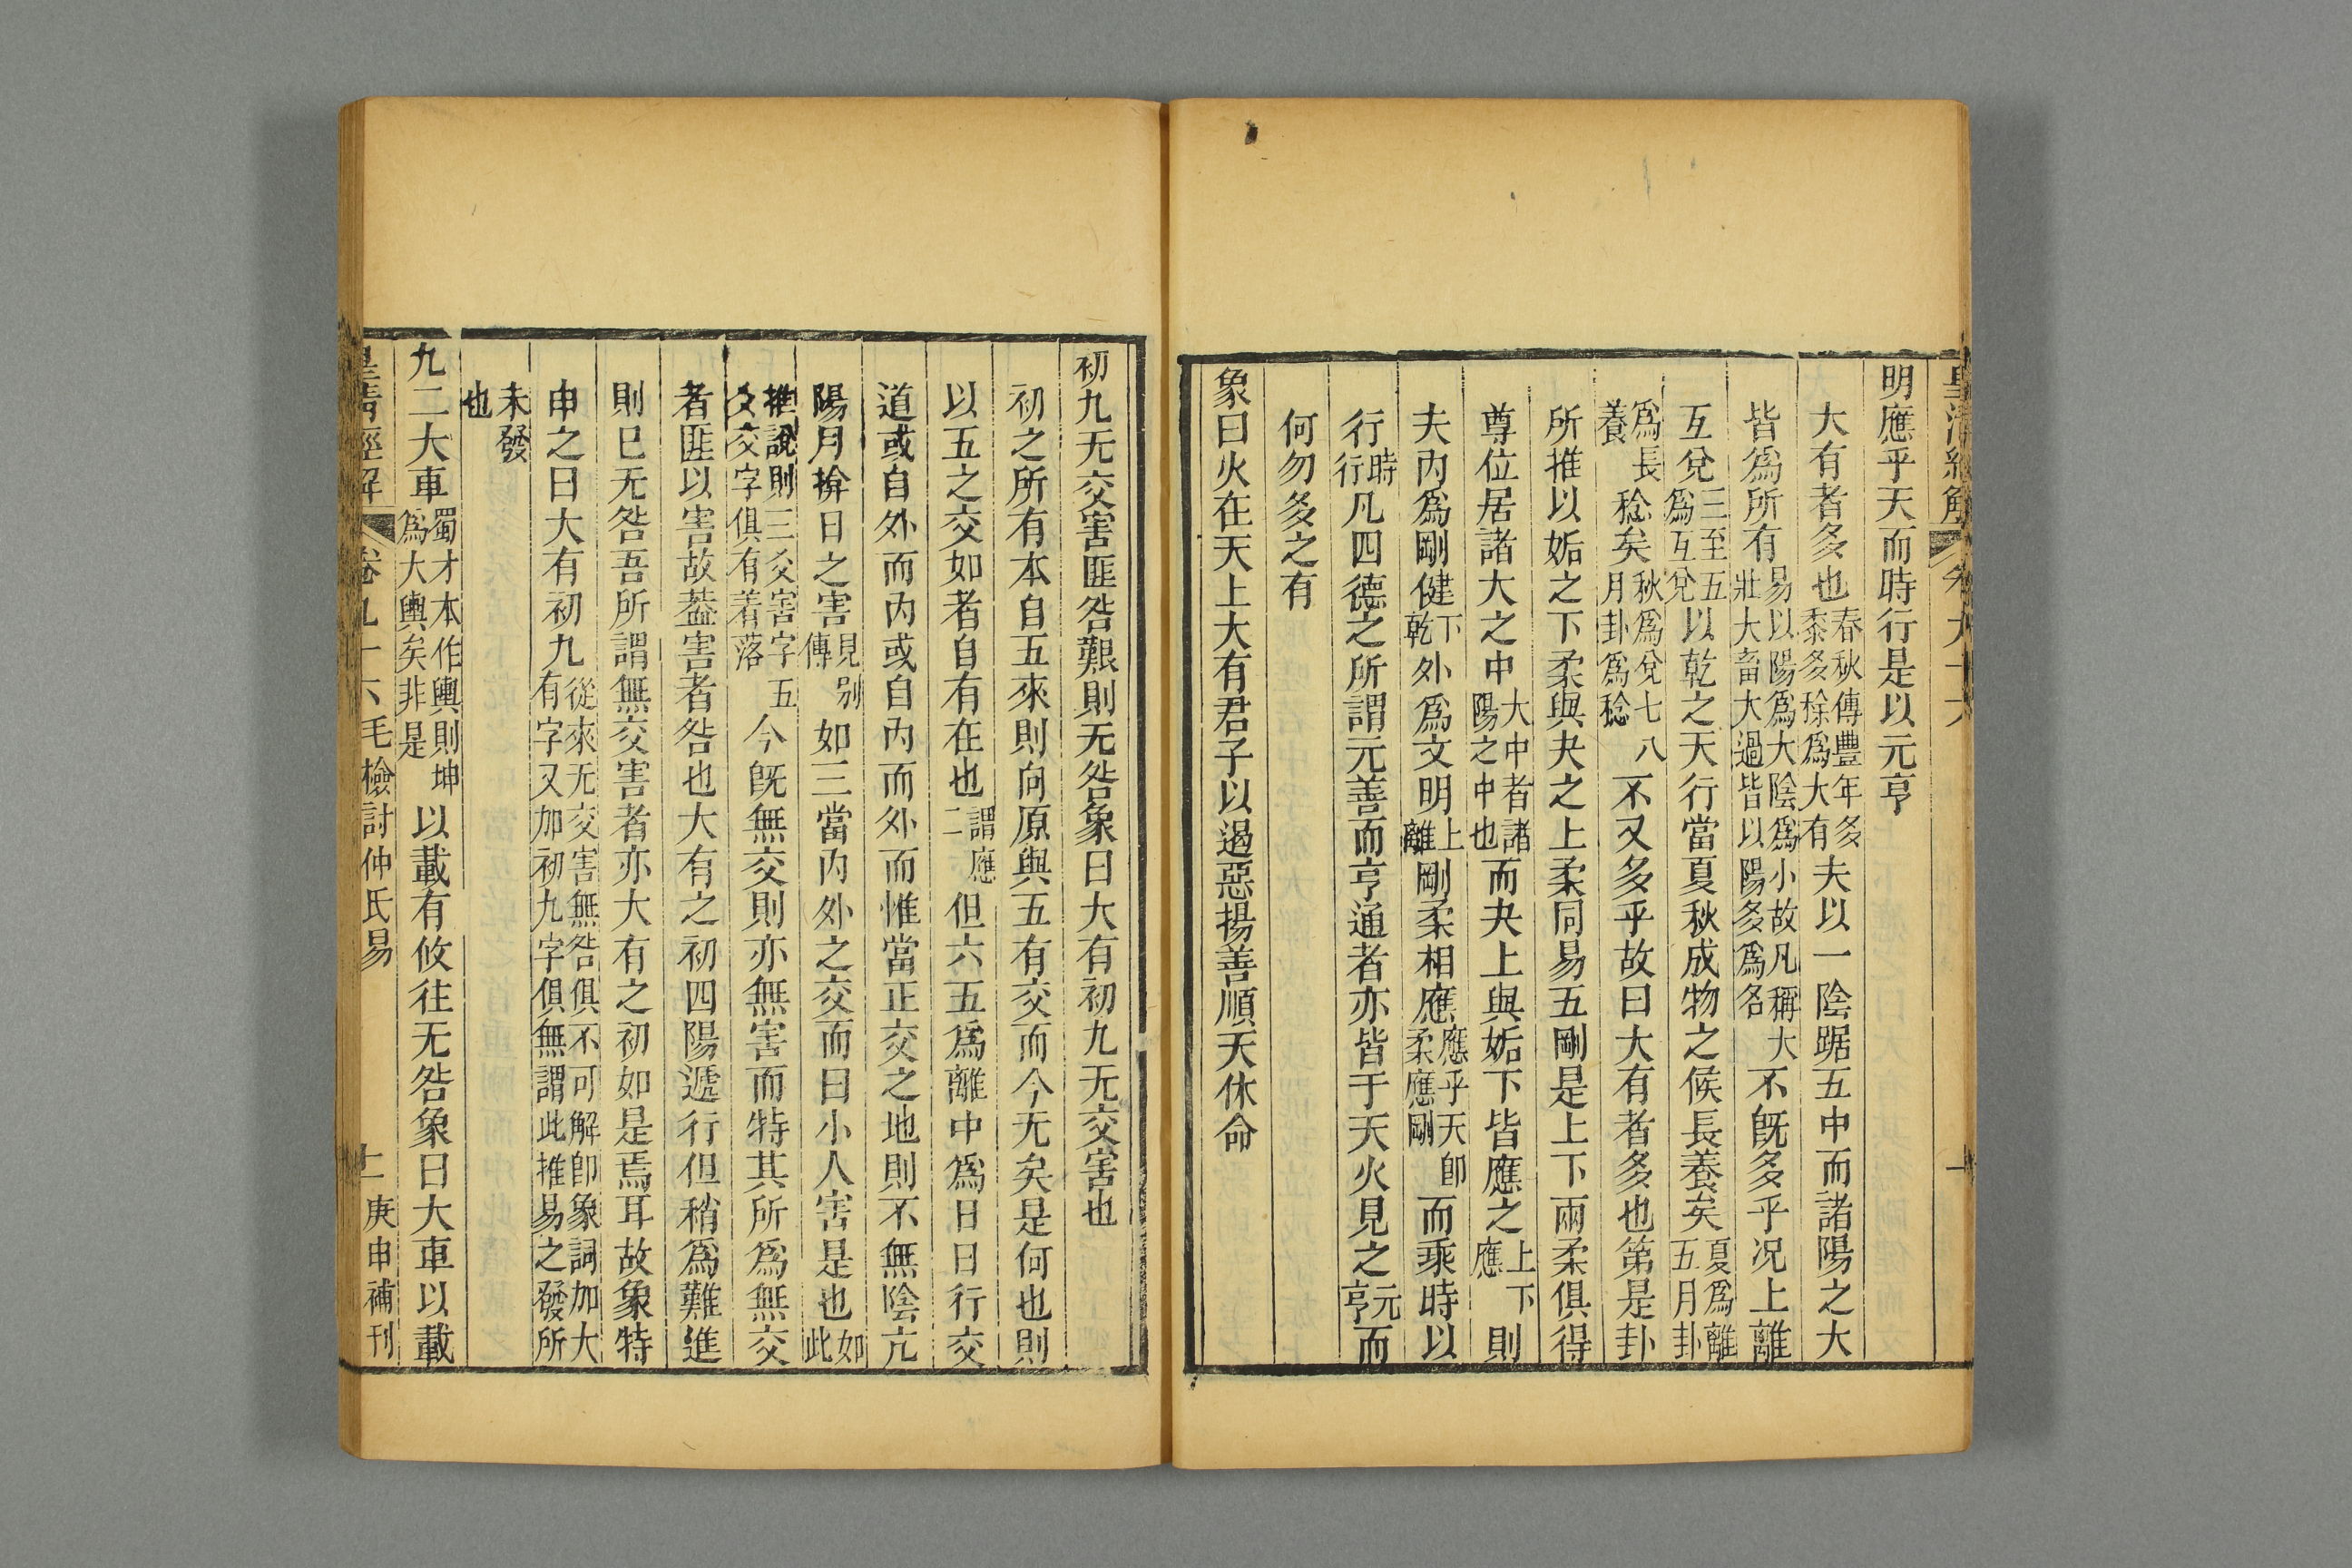 皇清經解
卷九十六
一
明應乎天而時行是以元亨
大有者多也春秋傳豐年多黍多稌爲大有夫以一陰踞五中而諸陽之大
皆爲所有易以陽爲大陰爲小故凡稱大壯大畜大過皆以陽多爲名不旣多乎况上離
互兌三至五爲互兌以乾之天行當夏秋成物之候長養矣夏爲離五月卦
爲長養稔矣秋爲兌七八月卦爲稔不又多乎故曰大有者多也第是卦
所推以姤之下柔與夬之上柔同易五剛是上下兩柔俱得
尊位居諸大之中大中者諸陽之中也而夬上與姤下皆應之上下應則
夫內爲剛健下乾外爲文明上離剛柔相應應乎天卽柔應剛而乘時以
行時行凡四德之所謂元善而亨通者亦皆于天火見之元亨而
何勿多之有
象曰火在天上大有君子以遏惡揚善順天休命
初九无交害匪咎艱則无咎象曰大有初九无交害也
初之所有本自五來則向原與五有交而今无矣是何也則
以五之交如者自有在也謂應二但六五爲離中爲日日行交
道或自外而內或自內而外而惟當正交之地則不無陰亢
陽月揜日之害見別傳如三當內外之交而曰小人害是也如此
推說則三爻害字五爻交字俱有着落今旣無交則亦無害而特其所爲無交
者匪以害故葢害者咎也大有之初四陽遞行但稍爲難進
則已无咎吾所謂無交害者亦大有之初如是焉耳故象特
申之曰大有初九從來无交害無咎俱不可解卽象詞加大有字又加初九字俱無謂此推易之發所
未發也
九二大車蜀才本作輿則坤爲大輿矣非是以載有攸往无咎象曰大車以載
皇清經解
卷九十六
毛檢討仲氏易
二
庚申補刊